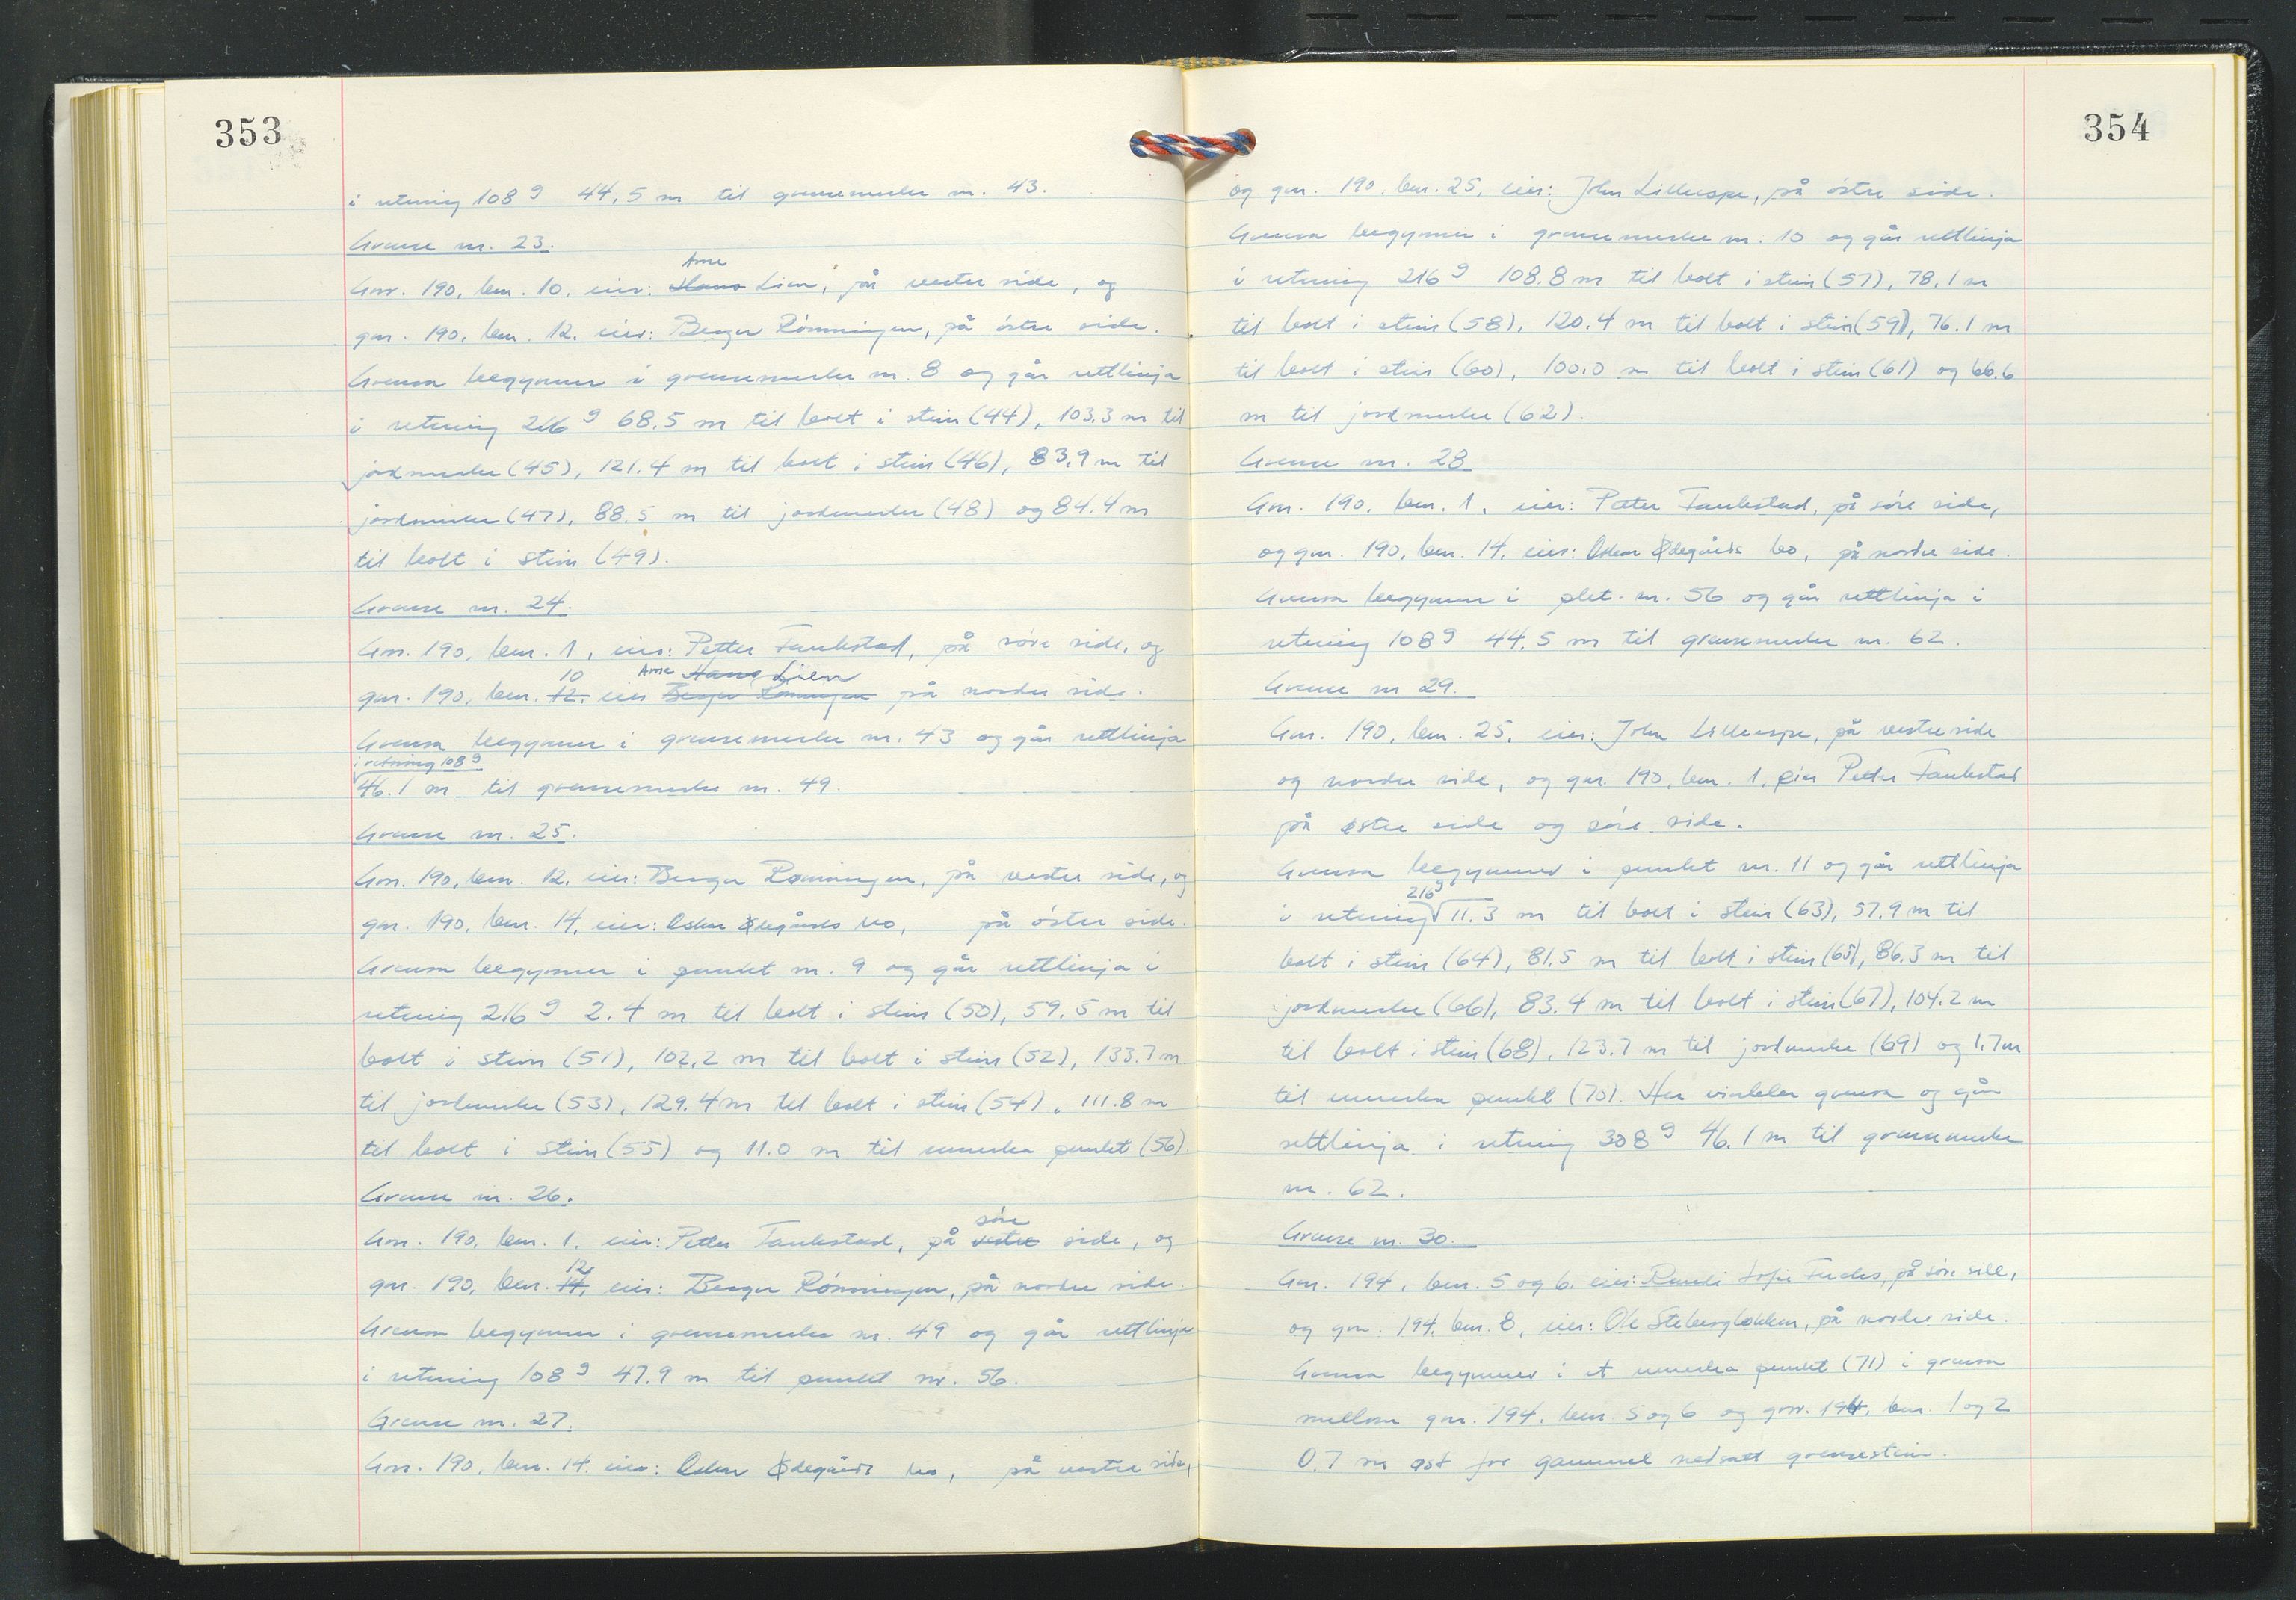 353
i retning 108 g 44,5 m til grensemerke nr. 43.
Grense nr. 23.
Arne
Gnr. 190, bnr. 10, eier: Hans Lien, på vestre side, og
gnr. 190, bnr. 12, eier: Berger Rönningen, på östre side.
Grensa begynner i grensemerke nr. 8 og går rettlinja
i retning 216 g 68.5 m til bolt i stein (44), 103.3 m til
jordmerke (45), 121.4 m til bolt i stein (46), 83.9 m til
jordmerke (47), 88.5 m til jordmerke (48) og 84.4 m
til bolt i stein (49).
Grense nr. 24.
Gnr. 190, bnr. 1, eier: Petter Faukstad, på söre side, og
10 Arne Hans Lien
gnr. 190, bnr. 12, eier Berger Rönningen på nordre side.
Grensa begynner i grensemerke nr. 43 og går rettlinja
i retning 108 g
46.1 m til grensemerke nr. 49.
Grense nr. 25.
Gnr. 190, bnr. 12, eier: Berger Rønningen, på vestre side, og
gnr. 190, bnr. 14, eier: Oskar Ødegårds bo, på östre side.
Grensa begynner i punkt nr. 9 og går rettlinja i
retning 216 g 2.4 m til bolt i stein (50), 59.5 m til
bolt i stein (51), 102.2 m til bolt i stein (52), 133.7 m
til jordmerke (53), 129.4 m til bolt i stein (54), 111.8 m
til bolt i stein (55) og 11.0 m til umerka punkt (56).
Grense nr. 26.
söre
Gnr. 190, bnr. 1, eier: Petter Faukstad, på vestre side, og
12,
gnr. 190, bnr. 14, eier: Berger Rönningen, på nordre side.
Grensa begynner i grensemerke nr. 49 og går rettlinja
i retning 108 g 47.9 m til punkt nr. 56.
Grense nr. 27.
Gnr. 190, bnr. 14, eier: Oskar Ødegårds bo, på vestre side,
354
og gnr. 190, bnr. 25, eier: John Lillerespe, på östre side.
Grensa begynner i grensemerke nr. 10 og går rettlinja
i retning 216 g 108.8 m til bolt i stein (57), 78.1 m
til bolt i stein (58), 120.4 m til bolt i stein (59), 76.1 m
til bolt i stein (60), 100.0 m til bolt i stein (61) og 66.6
m til jordmerke (62).
Grense nr. 28
Gnr. 190, bnr. 1, eier: Petter Faukstad, på söre side,
og gnr. 190, bnr. 14, eier: Oskar Ødegårds bo, på nordre side.
Grensa begynner i pkt. nr. 56 og går rettlinja i
retning 108 g 44.5 m til grensemerke nr. 62.
Grense nr 29.
Gnr. 190, bnr. 25, eier: John Lillerespe, på vestre side
og nordre side, og gnr. 190, bnr. 1, eier Petter Faukstad
på østre side og söre side.
Grensa begynner i punkt nr. 11 og går rettlinja
216 g
i retning 11.3 m til bolt i stein (63), 57.9 m til
bolt i stein (64), 81.5 m til bolt i stein (65), 86.3 m til
jordmerke (66), 83.4 m til bolt i stein (67), 104.2 m
til bolt i stein (68), 123.7 m til jordmerke (69) og 1.7 m
til umerka punkt (70). Her vinkler grensa og går
rettlinja i retning 308 g 46.1 m til grensemerke
nr. 62.
Grense nr. 30.
Gnr. 194, bnr. 5 og 6, eier: Randi Sofie, på söre side,
og gnr. 194, bnr. 8, eier: Ole Stebergløkken, på nordre side.
Grensa begynner i et umerka punkt (71) i grensa
mellom gnr. 194, bnr. 5 og 6 og gnr. 194, bnr. 1 og 2
0.7 m øst for gammel nedsatt grensestein.